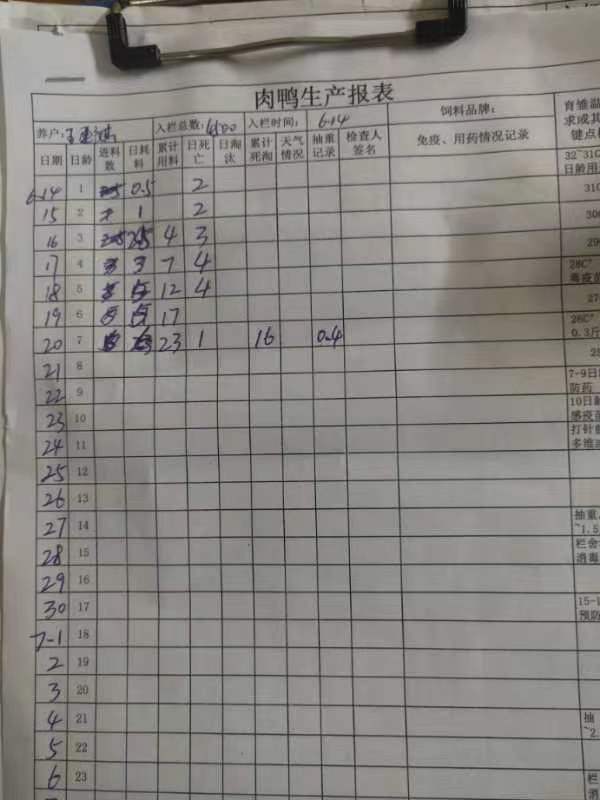 肉鸭生产报表
养户: 入栏总数: 6500 入栏时间: 6.14 饲料品牌: 育雏温
求或其
键点
日期 日龄 进料数 日耗料 累计用料 日死亡 日淘汰 累计死淘 天气情况 抽重记录 检查人签名 免疫、用药情况记录
32~31C
日龄用
6.14 1 0.5 2 31C
15 2 1 2 30
16 3 2.5 4 3 29
17 4 3 7 4 28C°
毒疫苗
18 5 5 12 4 27
19 6 5 17 26C°
0.3斤
20 7 6 23 1 16 0.4 25
21 8 7-9日
防药
22 9
23 10 10日龄
感疫苗
24 11 打针
多维
25 12
26 13
27 14 抽重
~1.5
28 15 栏舍
消毒
29 16
30 17 15-1
预防
7-1 18
2 19
3 20
4 21 抽
~2.
5 22
6 23 栏
消